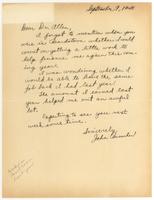 September 9, 1948
Dear Dr. Allen,
I forgot to mention when you
was in Sandstone whether I could
count on getting a little work to
help finance me again this com-
ing year.
I was wondering whether I
would be able to have the same
job back I had last year?
The amount I earned last
year helped me out an awful
lot.
Expecting to see you next
week some time.
Sincerely,
John